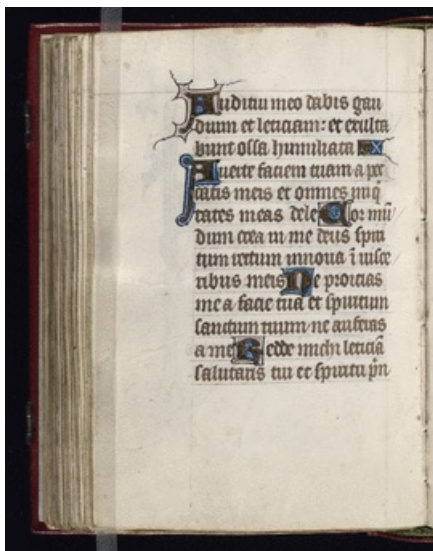 Auditui meo dabis gau
dium et leticiam: et exulta
bunt ossa humiliata
Auerte faciem tuam a pec
catis meis et omnes iniq̄
tates meas dele Cor mū
dum crea in me deus spiri
tum rectum innoua ī uisce
ribus meis Ne proicias
me a facie tua et spiritum
sanctum tuum ne auferas
a me Redde michi leticiā
salutaris tui et spiritu p̄n